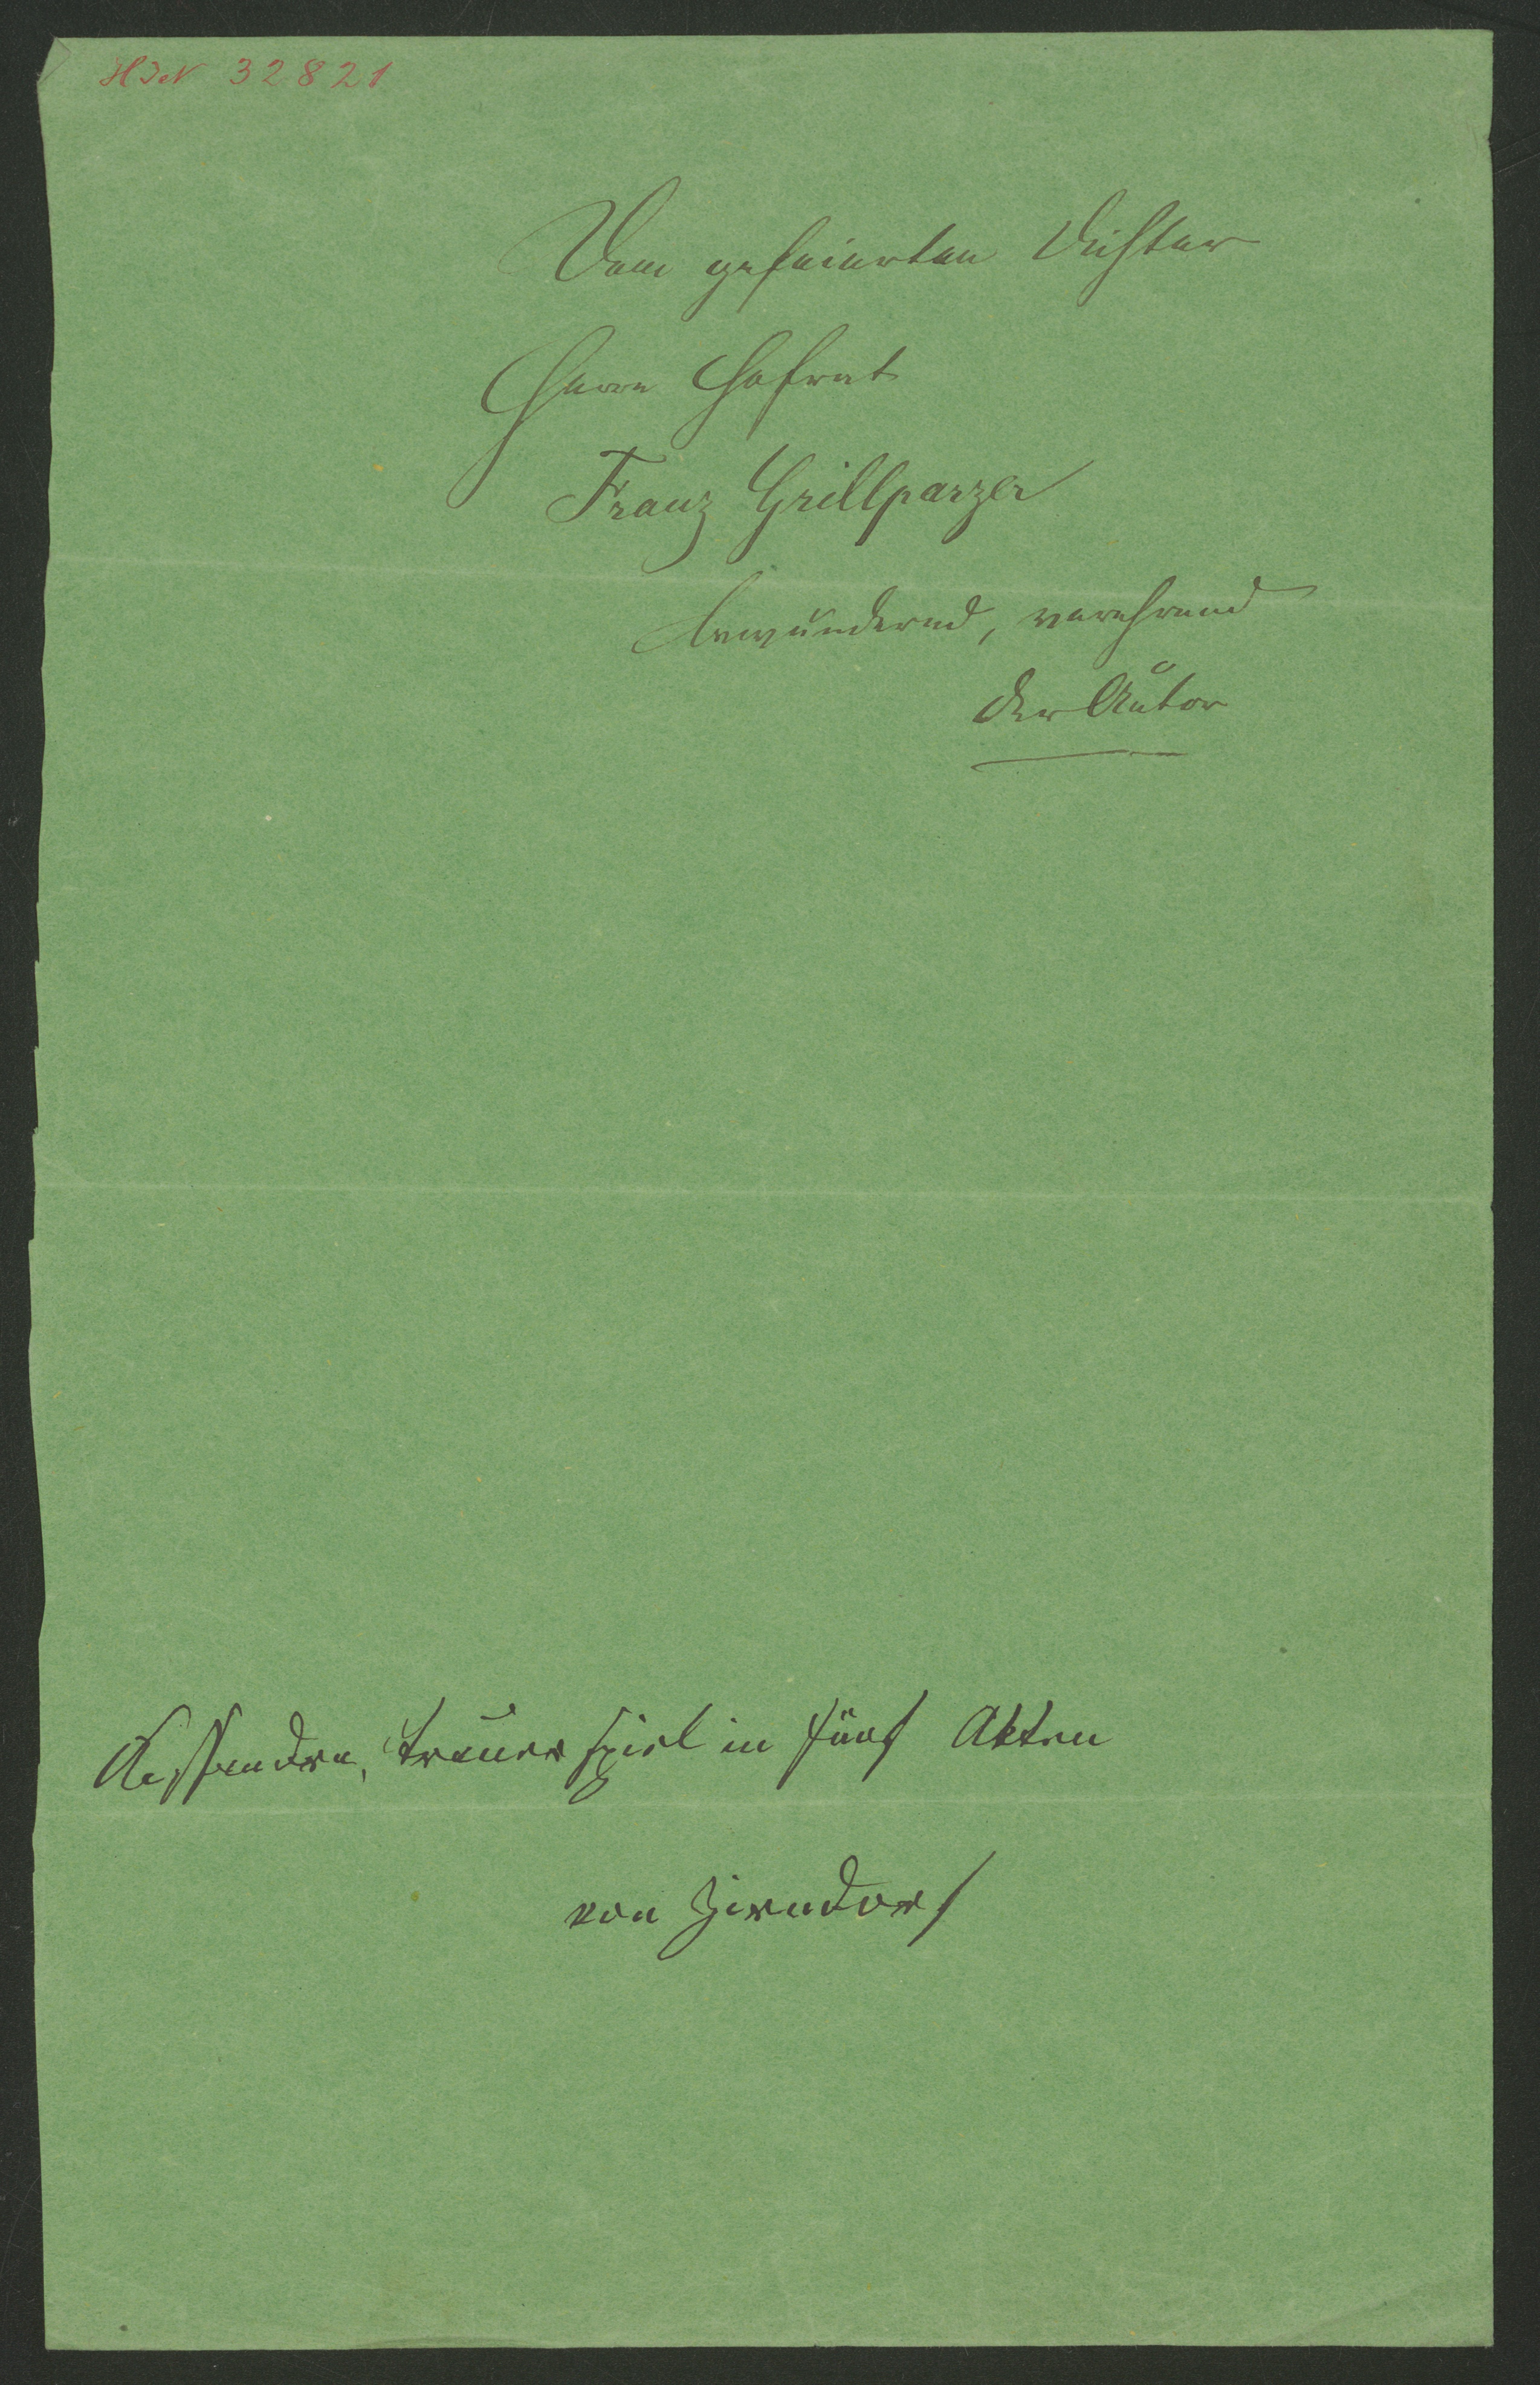 HIN 32821
Dem gefeierten Dichter
Herrn Hofrat
Franz Grillparzer
bewundernd, verehrend
der Autor
Kassandra, Trauerspiel in fünf Akten
von Zirndorf